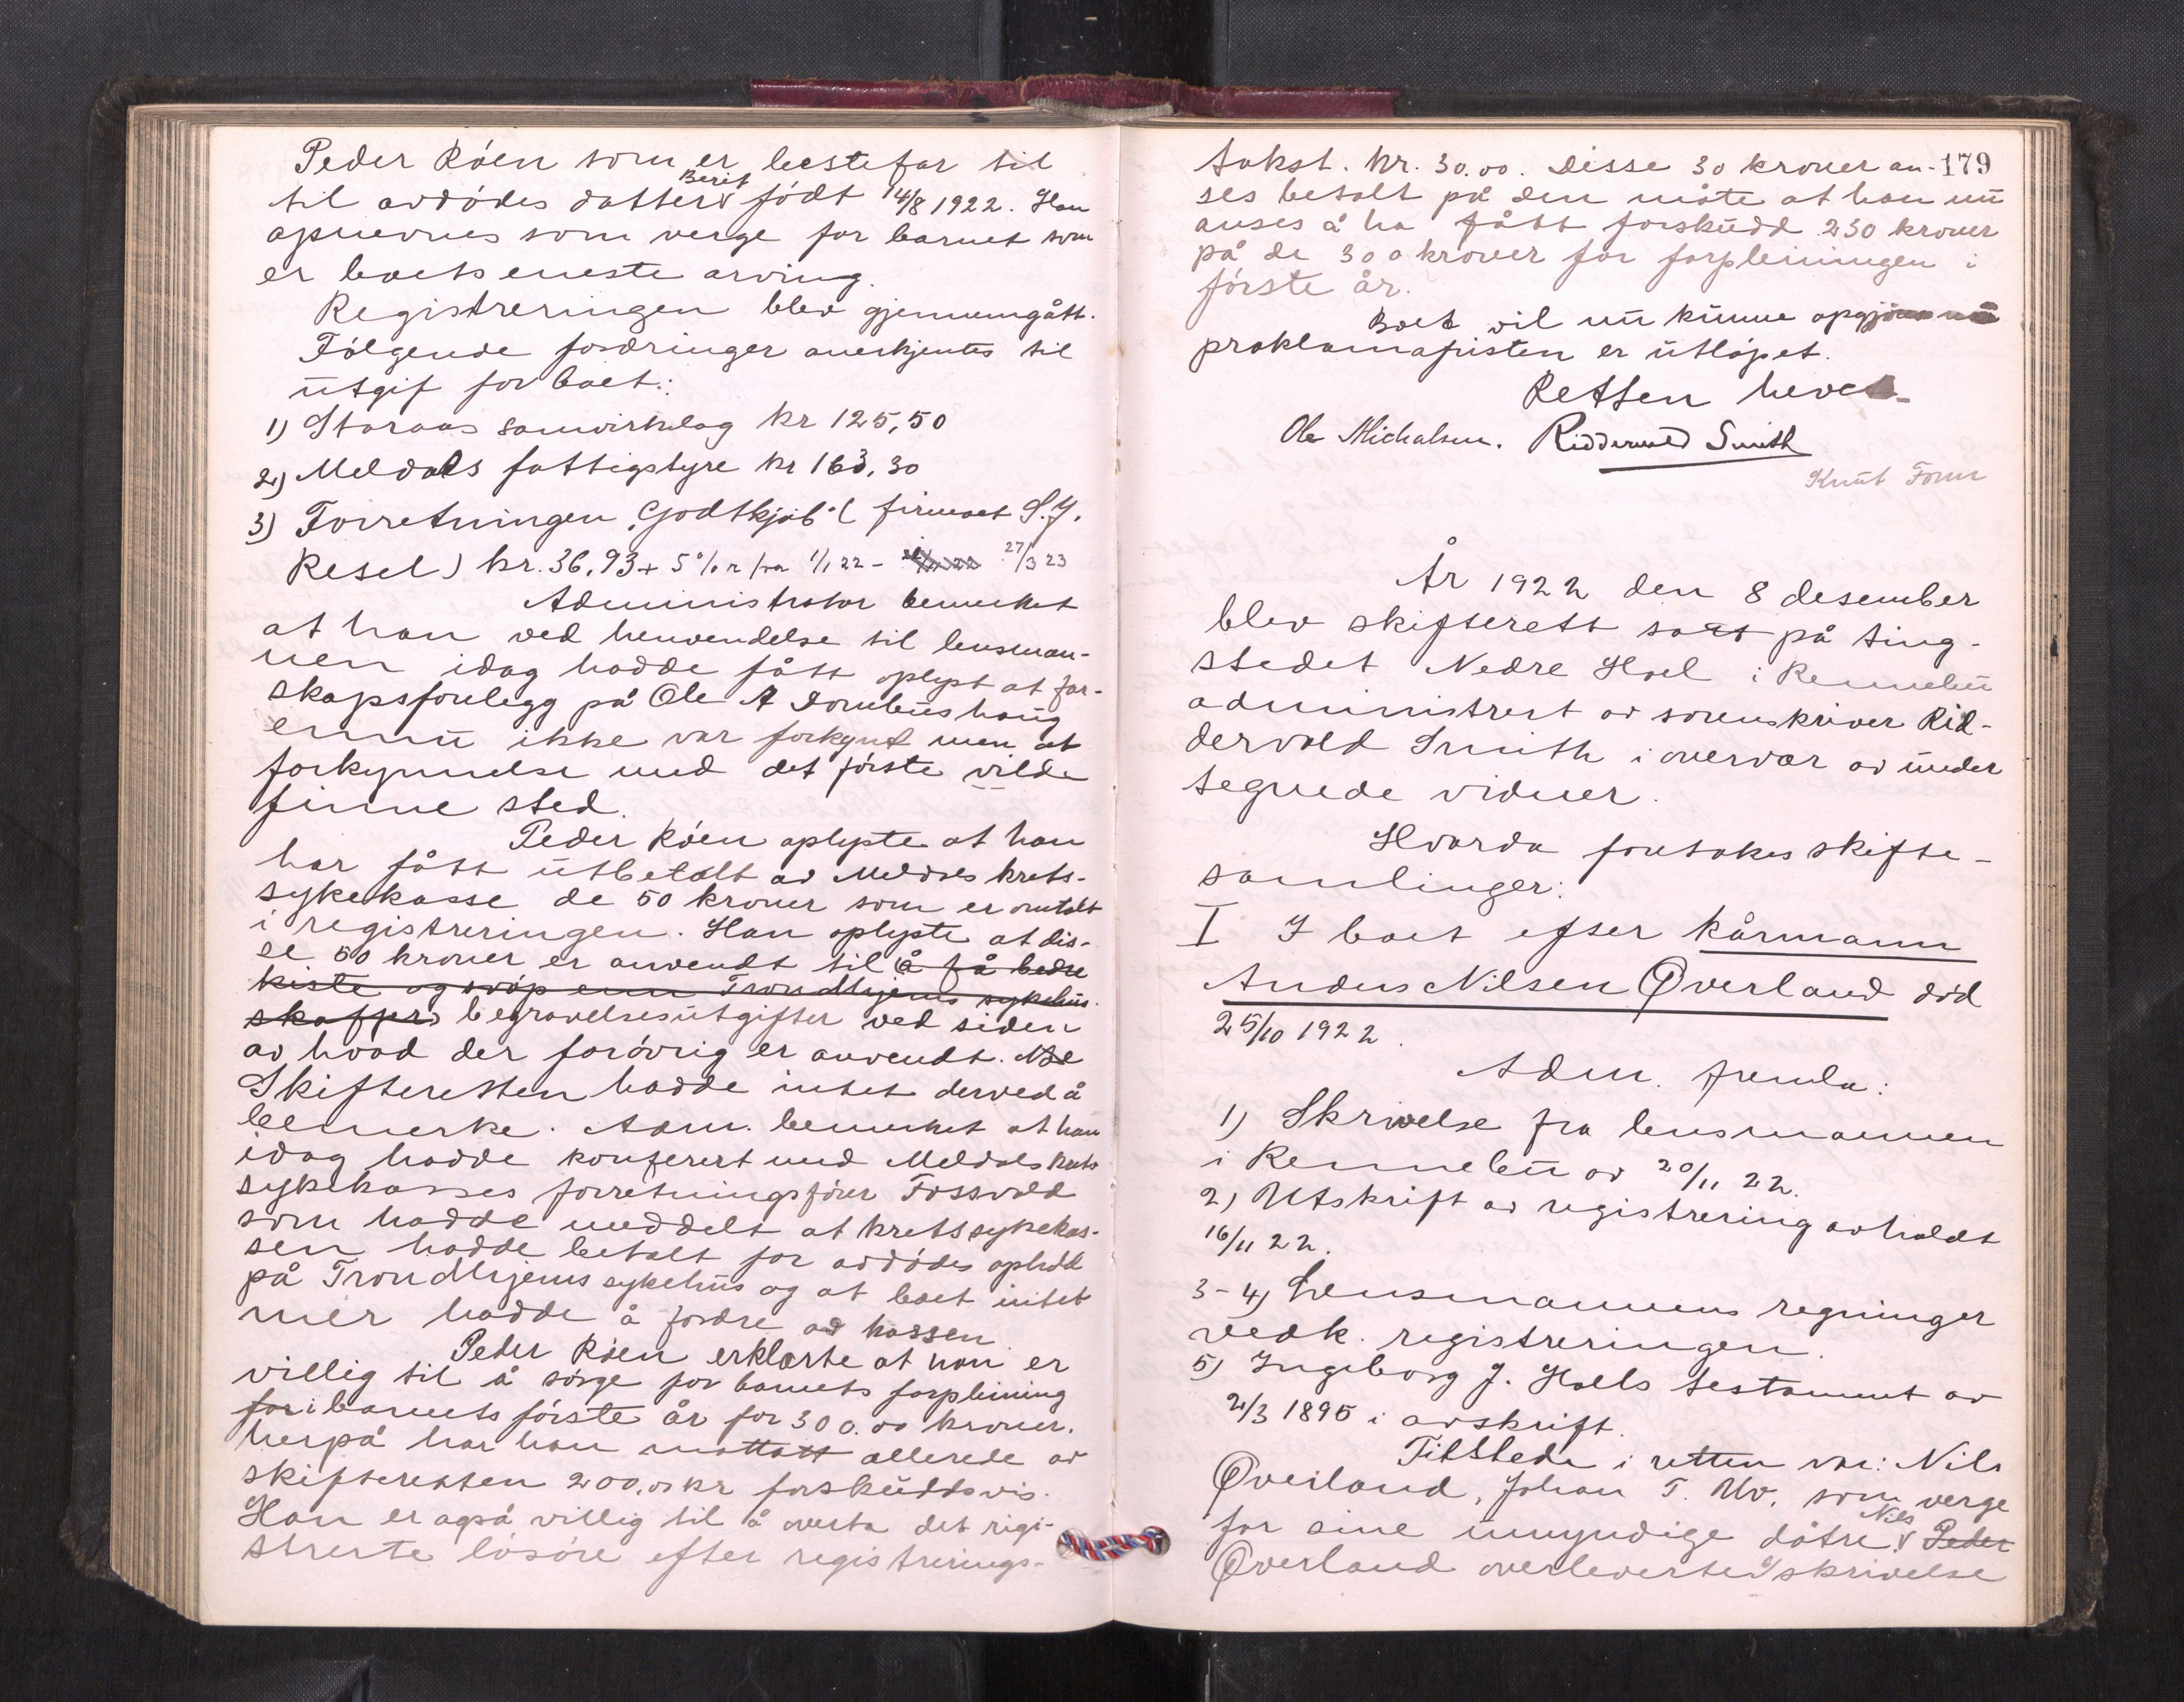 Peder Röen som er bestefar til
til avdödes datter Berit födt 14/8 1922. Han
opnevnes som verge for barnet som
er boets eneste arving.
Registreringen blev gjennemgått.
Fölgende fordringer anerkjentes til
utgif for boet:
1) Storaas samvirkelag kr 125,50
2) Meldals fattigstyre kr 163,30
3) Forretningen "Godtkjöb" (firmaet S. J.
Resel) kr. 36,93 + 5 % r fra 1/1 22 - 27/3 23
Administrator bemerket
at han ved henvendelse til lensman-
nen idag hadde fått oplyst at far-
skapsforelegg på Ole A Dombushaug
ennu ikke var forkynt men at
forkynnelse med det förste vilde
finne sted.
Peder Röen oplyste at han
har fått utbetalt av Meldals krets-
sykekasse de 50 kroner som er omtalt
i registreringen. Han oplyste at dis-
se 50 kroner er anvendt til å få bedre
kiste og svöp enn Trondhjems sykehus
skaffer begravelsesutgifter ved siden
av hvad der forövrig er anvendt.
Skifteretten hadde intet derved å
bemerke. Adm. bemerket at han
idag hadde konferert med Meldals krets
sykekasses forretningsförer Fossvold
som hadde meddelt at kretssykekas-
sen hadde betalt for avdödes ophold
på Trondhjems sykehus og at boet intet
mer hadde å fordre av kassen
Peder Röen erklærte at han er
villig til å sörge for barnets forpleining
for i barnets förste år for 300.00 kroner.
herpå har han mottatt allerede av
skifteretten 200,00 kr forskuddsvis.
Han er også villig til å overta det regi-
strerte lösöre efter registrerings-
179
takst. kr. 30.00. Disse 30 kroner an-
ses betalt på den måte at han nu
anses å ha fått forskudd 230 kroner
på de 300 kroner for forpleiningen i
förste år.
Boet vil nu kunne opgjöres
proklamafristen er utlöpet.
Retten hevet.
Ole Michalsen. Ridderwold Smith
Knut
År 1922 den 8 desember
blev skifterett satt på ting-
stedet Nedre Hoel i Rennebu
administrert av sorenskriver Rid-
dervold Smith i overvær av under
tegnede vidner.
Hvorda foretokes skifte-
samlinger:
I I boet efter kårmann
Anders Nilsen Øverland död
25/10 1922.
Adm. fremla:
1) Skrivelse fra lensmannen
i Rennebu av 20/11 22.
2) Utskrift av registrering avholdt
16/11 22.
3-4) Lensmannens regninger
vedk. registreringen.
5) Ingeborg J. Hoels testament av
2/3 1895 i avskrift.
Tilstede i retten var: Nils
Øverland, Johan T. Uv. som verge
for sine umyndige dötre. Nils Peder
Øverland overleverte skrivelse